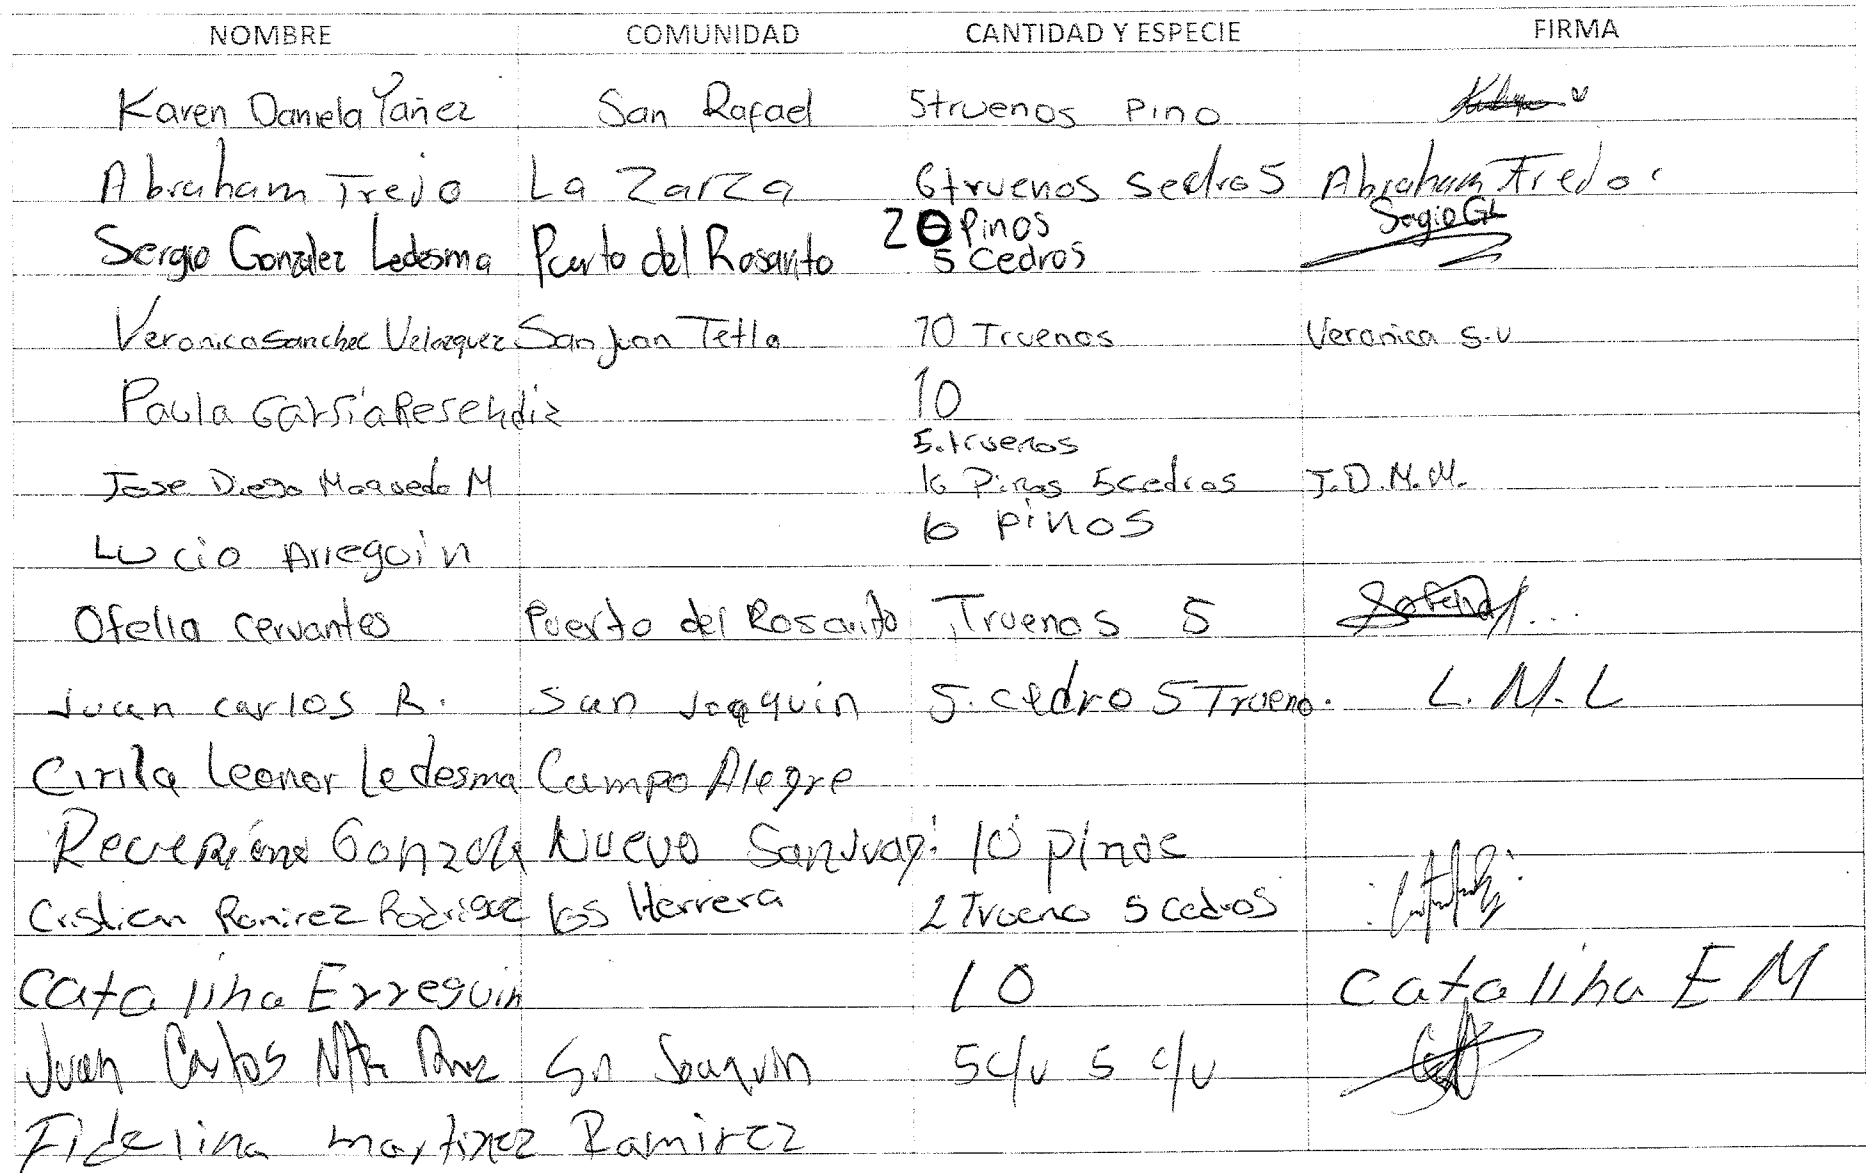 NOMBRE COMUNIDAD CANTIDAD Y ESPECIE FIRMA
Karen Daniela Yañez San Rafael 5truenos Pino
Abraham Trejo La Zarza 6truenos sedros Abraham Tredo
20 Pinos Segio GL
Sergio González Ledesma Puerto del Rosarito 5 Cedros
Veronica Sanchec Velazquez San Juan Tetla 10 Truenos Veronica S.V
Paula Garsía Resendiz 10
5.truenos
Jose Diego Maqueda M 10 Pinos 5cedros J.D.M.M.
10 pinos
Lucio Arreguin
Ofelia Cervantes Puerto del Rosarito Truenos 5
Juan carlos R. San Joaquin 5. cedro 5 Trueno. L.M.L
Cirila Leonor Ledesma Campo Alegre
Gonzale Nuevo San Juan 10 pinos
Cristian Ramirez Rodriguez los Herrera 2 Trueno 5 cedros
Catalina Erreguin 10 Catalina E M
Juan Carlos Sn Joaquin 5 c/u 5 c/u
Fidelina martinez Ramirez